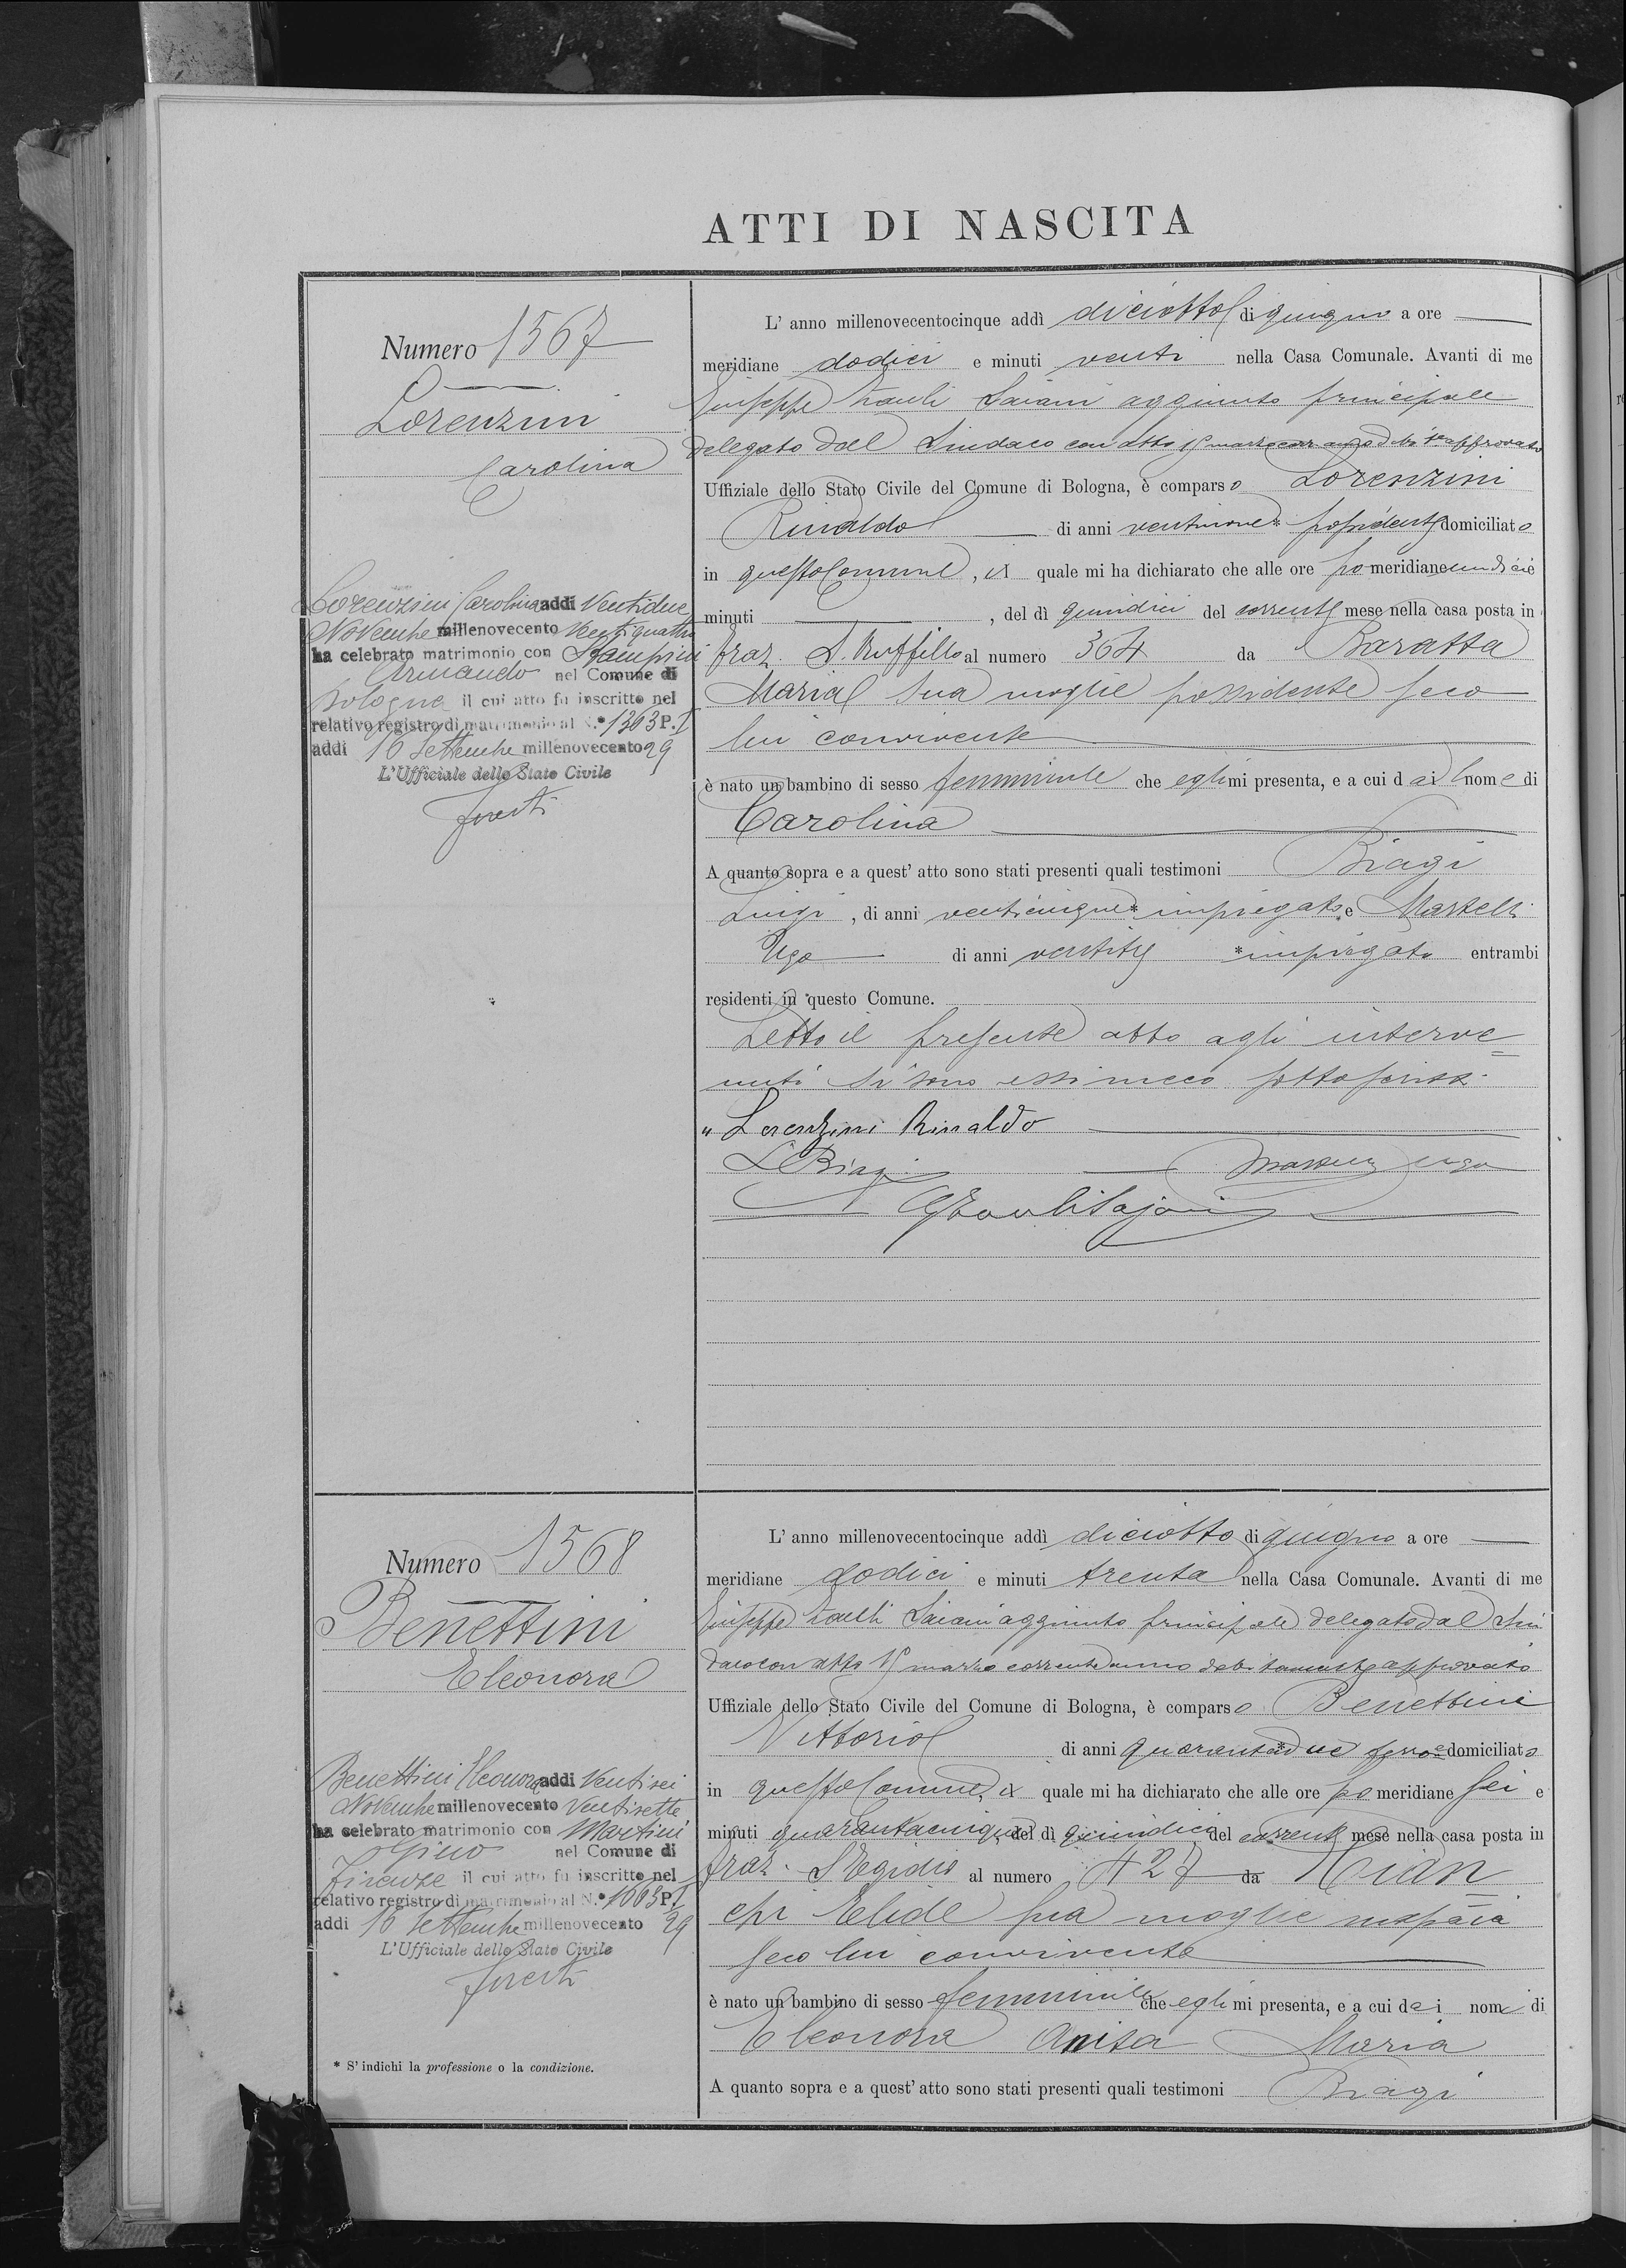 ATTI DI NASCITA
Numero 1567
Lorenzini
Carolina
Lorenzini Carolina addi Ventidue
Novembre millenovecento Ventiquattro
ha celebrato matrimonio con Stampini
Armando nel Comune di
Bologna il cui atto fu inscritto nel
relativo registro di matrimonio al N.º 1303 P. I
addi 16 Settembre millenovecento 29
L'Ufficiale dello Stato Civile
L' anno millenovecentocinque addì diciotto di giugno a ore —
meridiane dodici e minuti venti nella Casa Comunale. Avanti di me
Giuseppe Saiani aggiunto principale
delegato dal Sindaco con atto marzo corr anno approvato
Uffiziale dello Stato Civile del Comune di Bologna, è comparso Lorenzini
Rinaldo — di anni ventinove * possidente domiciliato
in questo Comune, il quale mi ha dichiarato che alle ore pomeridiane undici e
minuti — , del dì quindici del corrente mese nella casa posta in
fraz. S. Ruffillo al numero 364 da Baratta
Maria sua moglie possidente seco
lui convivente
è nato un bambino di sesso femminile che egli mi presenta, e a cui dai l nome di
Carolina
A quanto sopra e a quest' atto sono stati presenti quali testimoni Biagi
Luigi , di anni venticinque * impiegato e Martelli
Ugo — di anni ventitre * impiegato entrambi
residenti in questo Comune.
Letto il presente atto agli interve=
nuti si sono essi meco sottoscritti.
" Lorenzini Rinaldo
L Biagi Ugo
Numero 1568
Benettini
Eleonora
Benettini Eleonora addi Ventisei
Novembre millenovecento Ventisette
ha celebrato matrimonio con Martini
Gino nel Comune di
Firenze il cui atto fu inscritto nel
relativo registro di matrimonio al N.º 1063 P. I
addi 16 Settembre millenovecento 29
L'Ufficiale dello Stato Civile
* S' indichi la professione o la condizione.
L' anno millenovecentocinque addì diciotto di giugno a ore —
meridiane dodici e minuti trenta nella Casa Comunale. Avanti di me
Giuseppe Saiani aggiunto principale delegato dal Sin
daco con atto marzo corrente anno debitamente approvato
Uffiziale dello Stato Civile del Comune di Bologna, è comparso Benettini
Vittorio di anni quarantadue * domiciliato
in questo Comune, il quale mi ha dichiarato che alle ore pomeridiane sei e
minuti quarantacinque del dì quindici del corrente mese nella casa posta in
fraz. S Egidio al numero 427 da
Elide sua moglie massaia
seco lui convivente
è nato un bambino di sesso femminile che egli mi presenta, e a cui dai nomi di
Eleonora Anita Maria
A quanto sopra e a quest' atto sono stati presenti quali testimoni Biagi